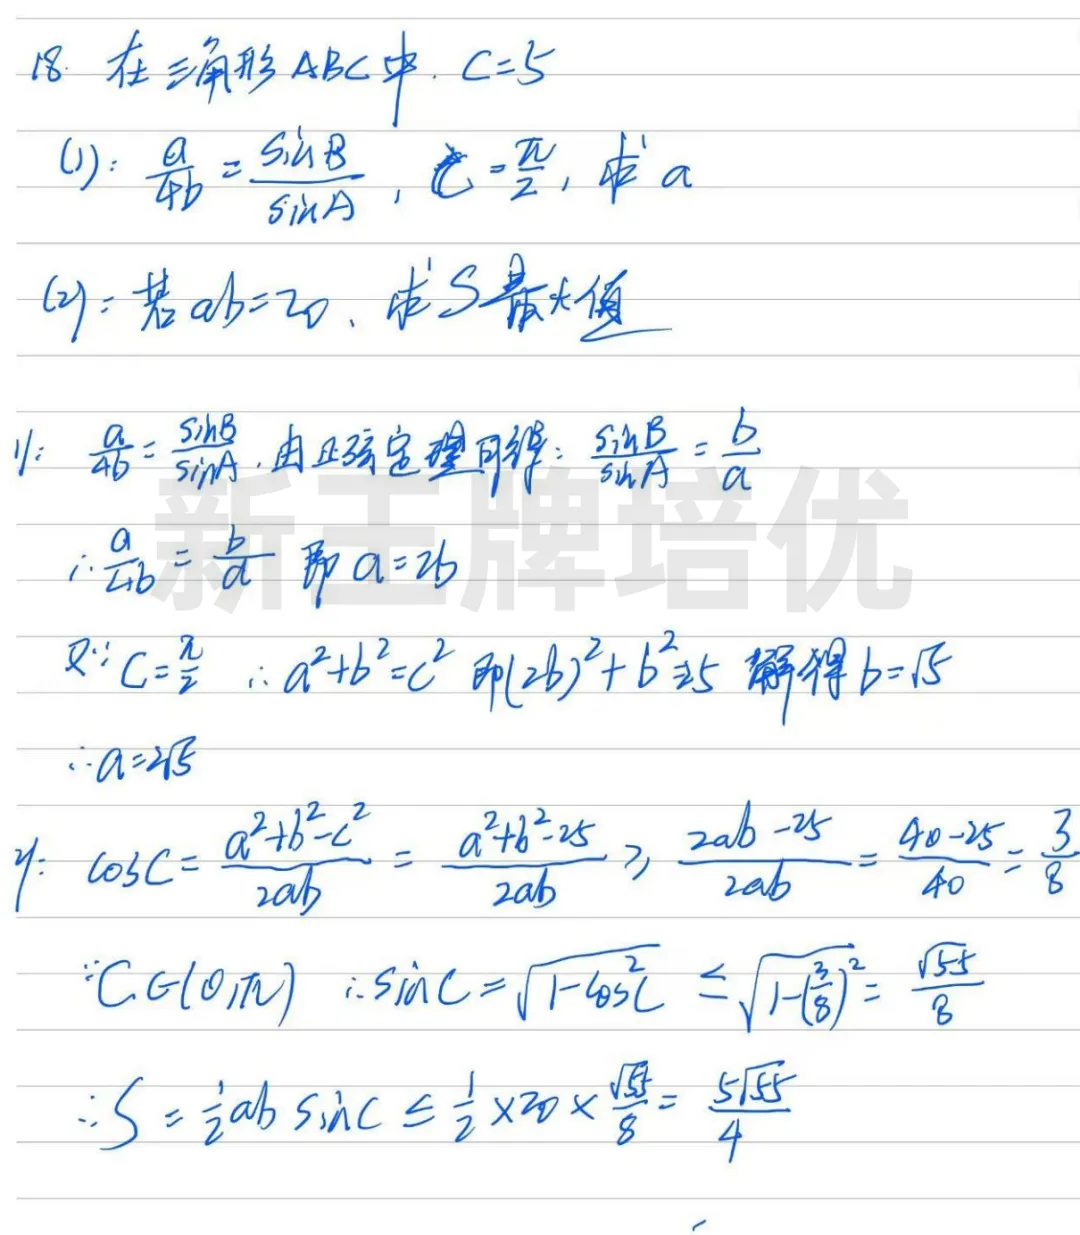 18. 在三角形ABC中. C=5
(1): a/4b = sinB/sinA, C=π/2, 求a
(2): 若ab=20、求S最大值
1/: a/4b = sinB/sinA. 由正弦定理可得: sinB/sinA = b/a
新王牌培优
∴ a/4b = b/a 即 a=2b
又∵ C=π/2 ∴ a²+b²=c² 即(2b)²+b²=25 解得 b=√5
∴ a=2√5
2/: cosC = (a²+b²-c²)/2ab = (a²+b²-25)/2ab ≥ (2ab-25)/2ab = (40-25)/40 = 3/8
∵ C∈(0,π) ∴ sinC = √(1-cos²C) ≤ √(1-(3/8)²) = √55/8
∴ S = ½ab sinC ≤ ½×20×√55/8 = 5√55/4